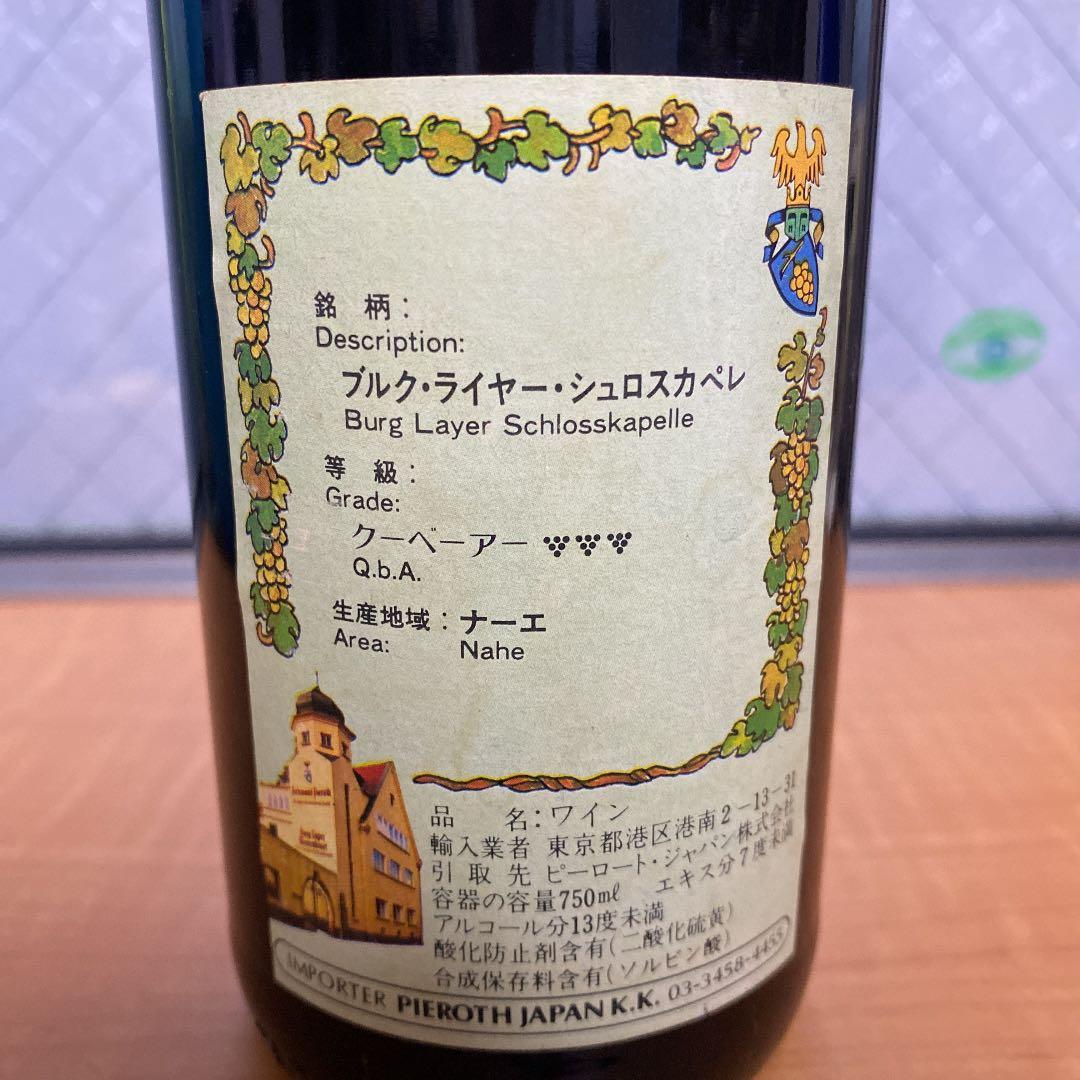 銘柄：
Description:
ブルク・ライヤー・シュロスカペレ
Burg Layer Schlosskapelle
等級：
Grade:
クーベーアー
Q.b.A.
生産地域：ナーエ
Area: Nahe
品名：ワイン
輸入業者 東京都港区港南2-13-31
引取先 ピーロート・ジャパン株式会社
容器の容量750mℓ エキス分7度未満
アルコール分13度未満
酸化防止剤含有(二酸化硫黄)
合成保存料含有(ソルビン酸)
IMPORTER PIEROTH JAPAN K.K. 03-3458-4455